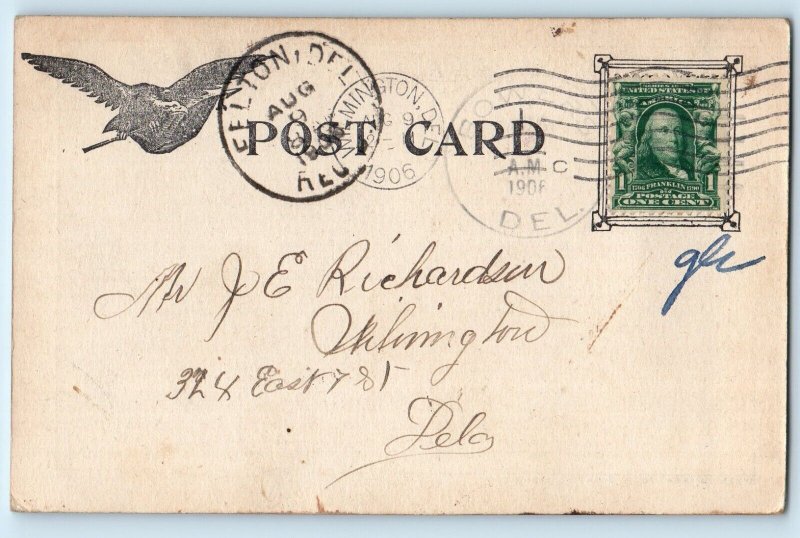 FELTON, DEL.
AUG
9
1906
REC'D
WILMINGTON, DEL.
AUG 9
1906
BOW
DEL.
A.M.
1906
POST CARD
UNITED STATES OF
AMERICA
1 1706 FRANKLIN 1790 1
POSTAGE
ONE CENT
Mr J E Richardson
Wilmington
324 East 7 St
Dela